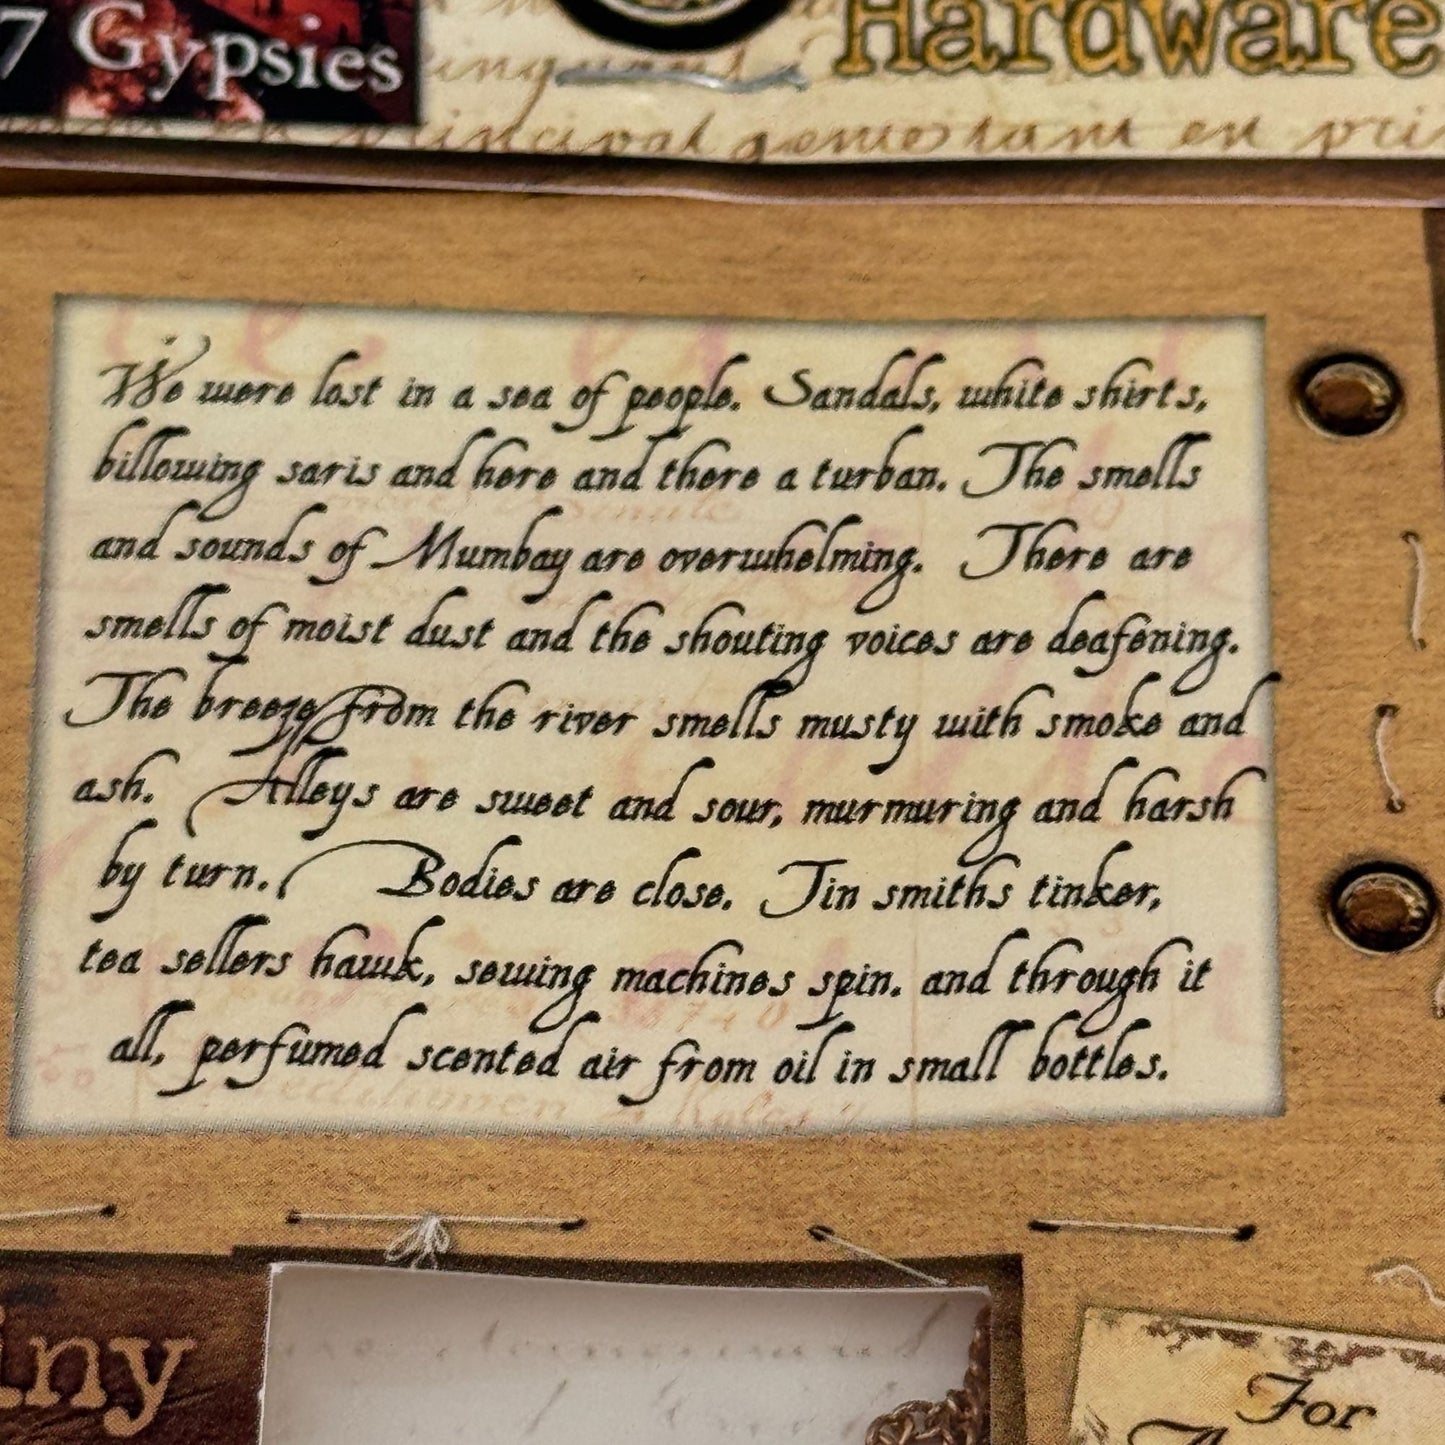 7 Gypsies
Hardware
principal en pri
We were lost in a sea of people. Sandals, white shirts,
billowing saris and here and there a turban. The smells
and sounds of Mumbay are overwhelming. There are
smells of moist dust and the shouting voices are deafening.
The breeze from the river smells musty with smoke and
ash. Alleys are sweet and sour, murmuring and harsh
by turn. Bodies are close. Tin smiths tinker,
tea sellers hawk, sewing machines spin. and through it
all, perfumed scented air from oil in small bottles.
iny
For